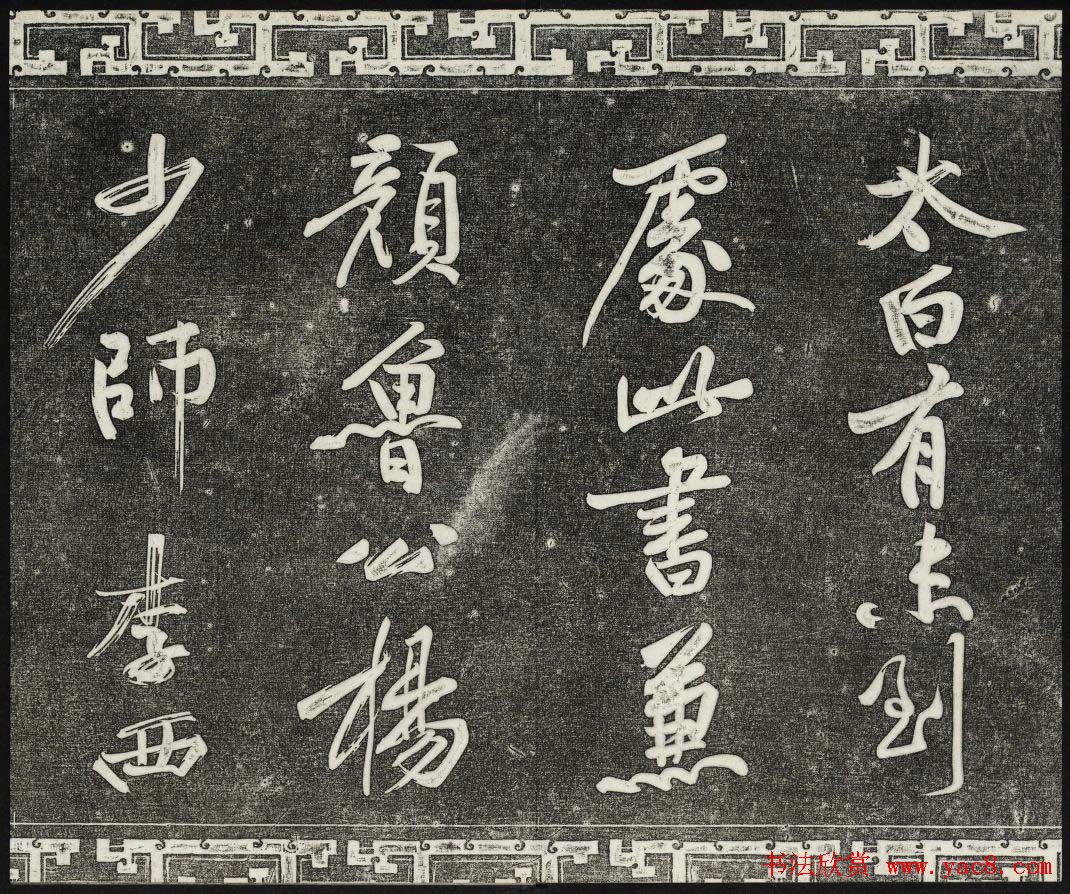 太白有未到
處此書兼
顏魯公楊
少師李西
书法欣赏 www.yac8.com